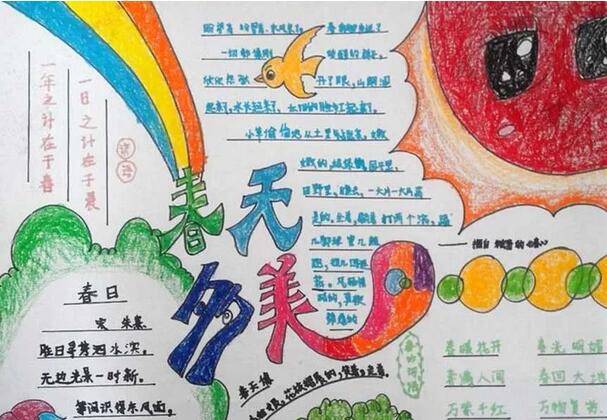 一年之计在于春
一日之计在于晨
谚语
一切都像刚
睡醒的样子,
开了眼。山朗润
起来了,水长起来了,太阳的脸红起来了。
小草偷偷地从土里钻出来,嫩
嫩的,绿绿的。园子里,
田野里,瞧去,一大片一大片满
是的。坐着,躺着,打两个滚,踢
几脚球,赛几趟
春天
多美
春日
宋 朱熹
胜日寻芳泗水滨,
无边光景一时新。
等闲识得东风面,
春天像
春暖花开
春光明媚
春满人间
春回大地
万紫千红
万物复苏